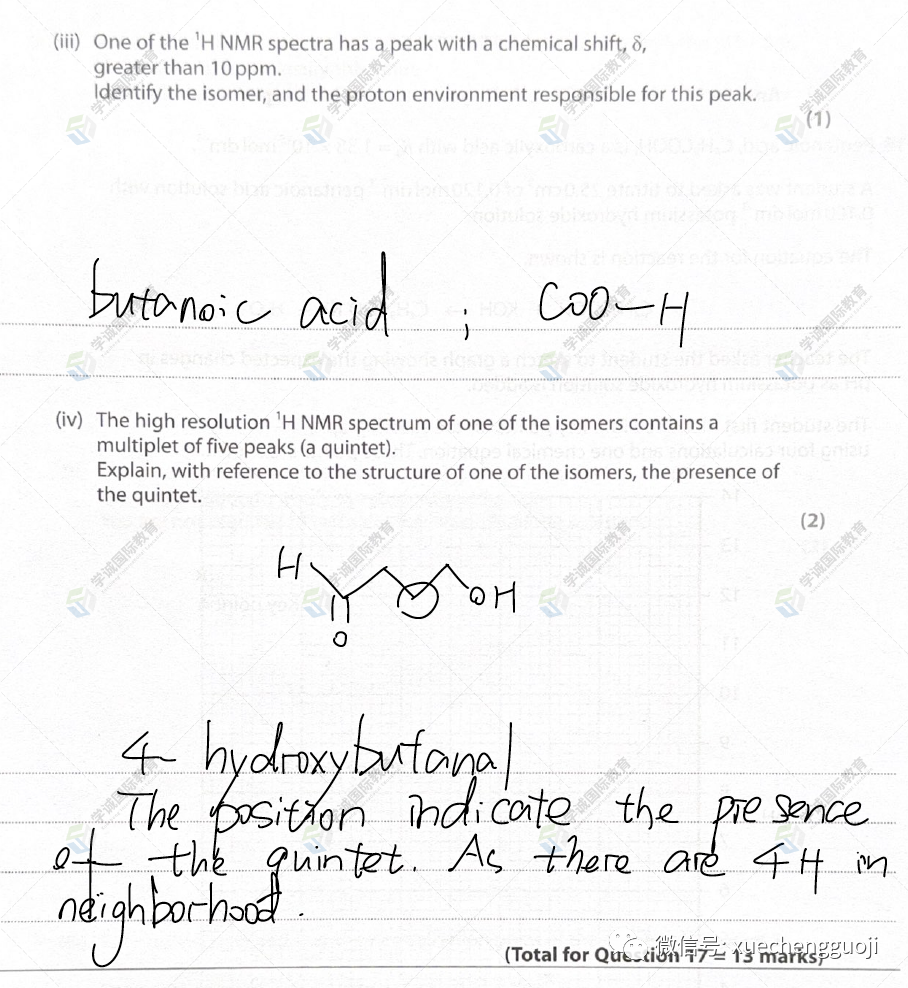 (iii) One of the ¹H NMR spectra has a peak with a chemical shift, δ,
greater than 10 ppm.
Identify the isomer, and the proton environment responsible for this peak.
(1)
butanoic acid ; COO—H
(iv) The high resolution ¹H NMR spectrum of one of the isomers contains a
multiplet of five peaks (a quintet).
Explain, with reference to the structure of one of the isomers, the presence of
the quintet.
(2)
H
OH
O
4- hydroxybutanal
The position indicate the presence
of the quintet. As there are 4H in
neighborhood.
(Total for Question 17 = 13 marks)
微信号: xuechengguoji
学诚国际教育